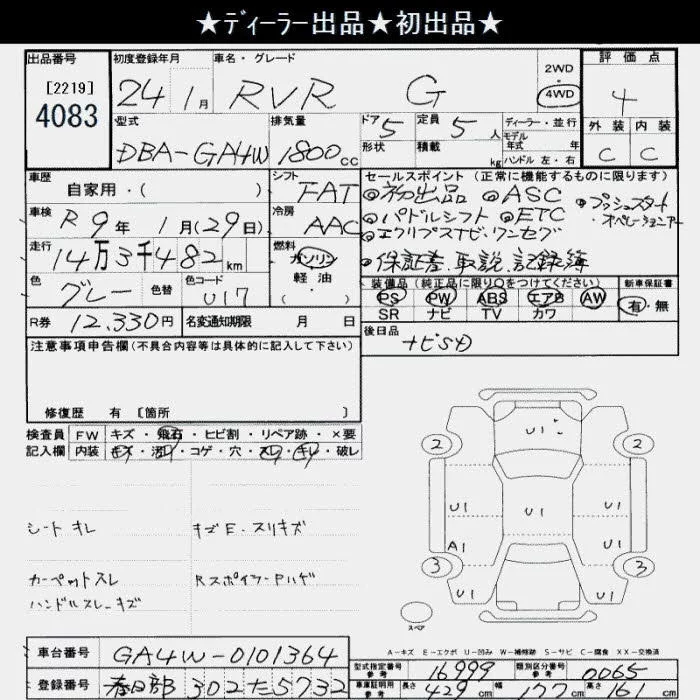 ★ディーラー出品★初出品★
出品番号
[2219]
4083
初度登録年月
24年 1月
車名・グレード
RVR G
2WD
4WD
評価点
4
外装 内装
C C
型式
DBA-GA4W
排気量
1800cc
ドア 5
形状
定員 5人
積載 kg
ディーラー・並行
モデル年式 年
ハンドル 左・右
車歴
自家用・( )
シフト
FAT
車検
R9年 1月(29日)
冷房
AAC
走行
14万3千482km
燃料
ガソリン
軽油
・( )
色
グレー
色替
色コード
U17
R券 12,330円
名変通知期限 月 日
セールスポイント (正常に機能するものに限ります)
◎初出品 ◎ASC ◎プッシュスタート
◎パドルシフト ◎ETC ・オペレーションキー
◎エクリプスナビ・ワンセグ
◎保証書、取説、記録簿
装備品(純正品に限り○をつけてください)
PS PW ABS エアB AW
SR ナビ TV カワ
新車保証書
有・無
後日品
ナビSD
注意事項申告欄(不具合内容等は具体的に記入して下さい)
修復歴 有 [箇所 ]
検査員記入欄
FW キズ・飛石・ヒビ割・リペア跡・×要
内装 キズ・汚れ・コゲ・穴・スレ・キレ・破レ
シート キレ
キズE・スリキズ
カーペットスレ
Rスポイラー Pハゲ
ハンドルスレ・キズ
U1
2 2
U1 U1 U1
A1 U1
3 3
U1 U1
スペア
A-キズ E-エクボ U-凹み W-補修跡 S-サビ C-腐食 XX-交換済
車台番号 GA4W-0101364
登録番号 春日部 302 た 5732
型式指定番号 参考 16999
類別区分番号 参考 0065
車庫証明用 参考 長さ 429cm 幅 177cm 高さ cm